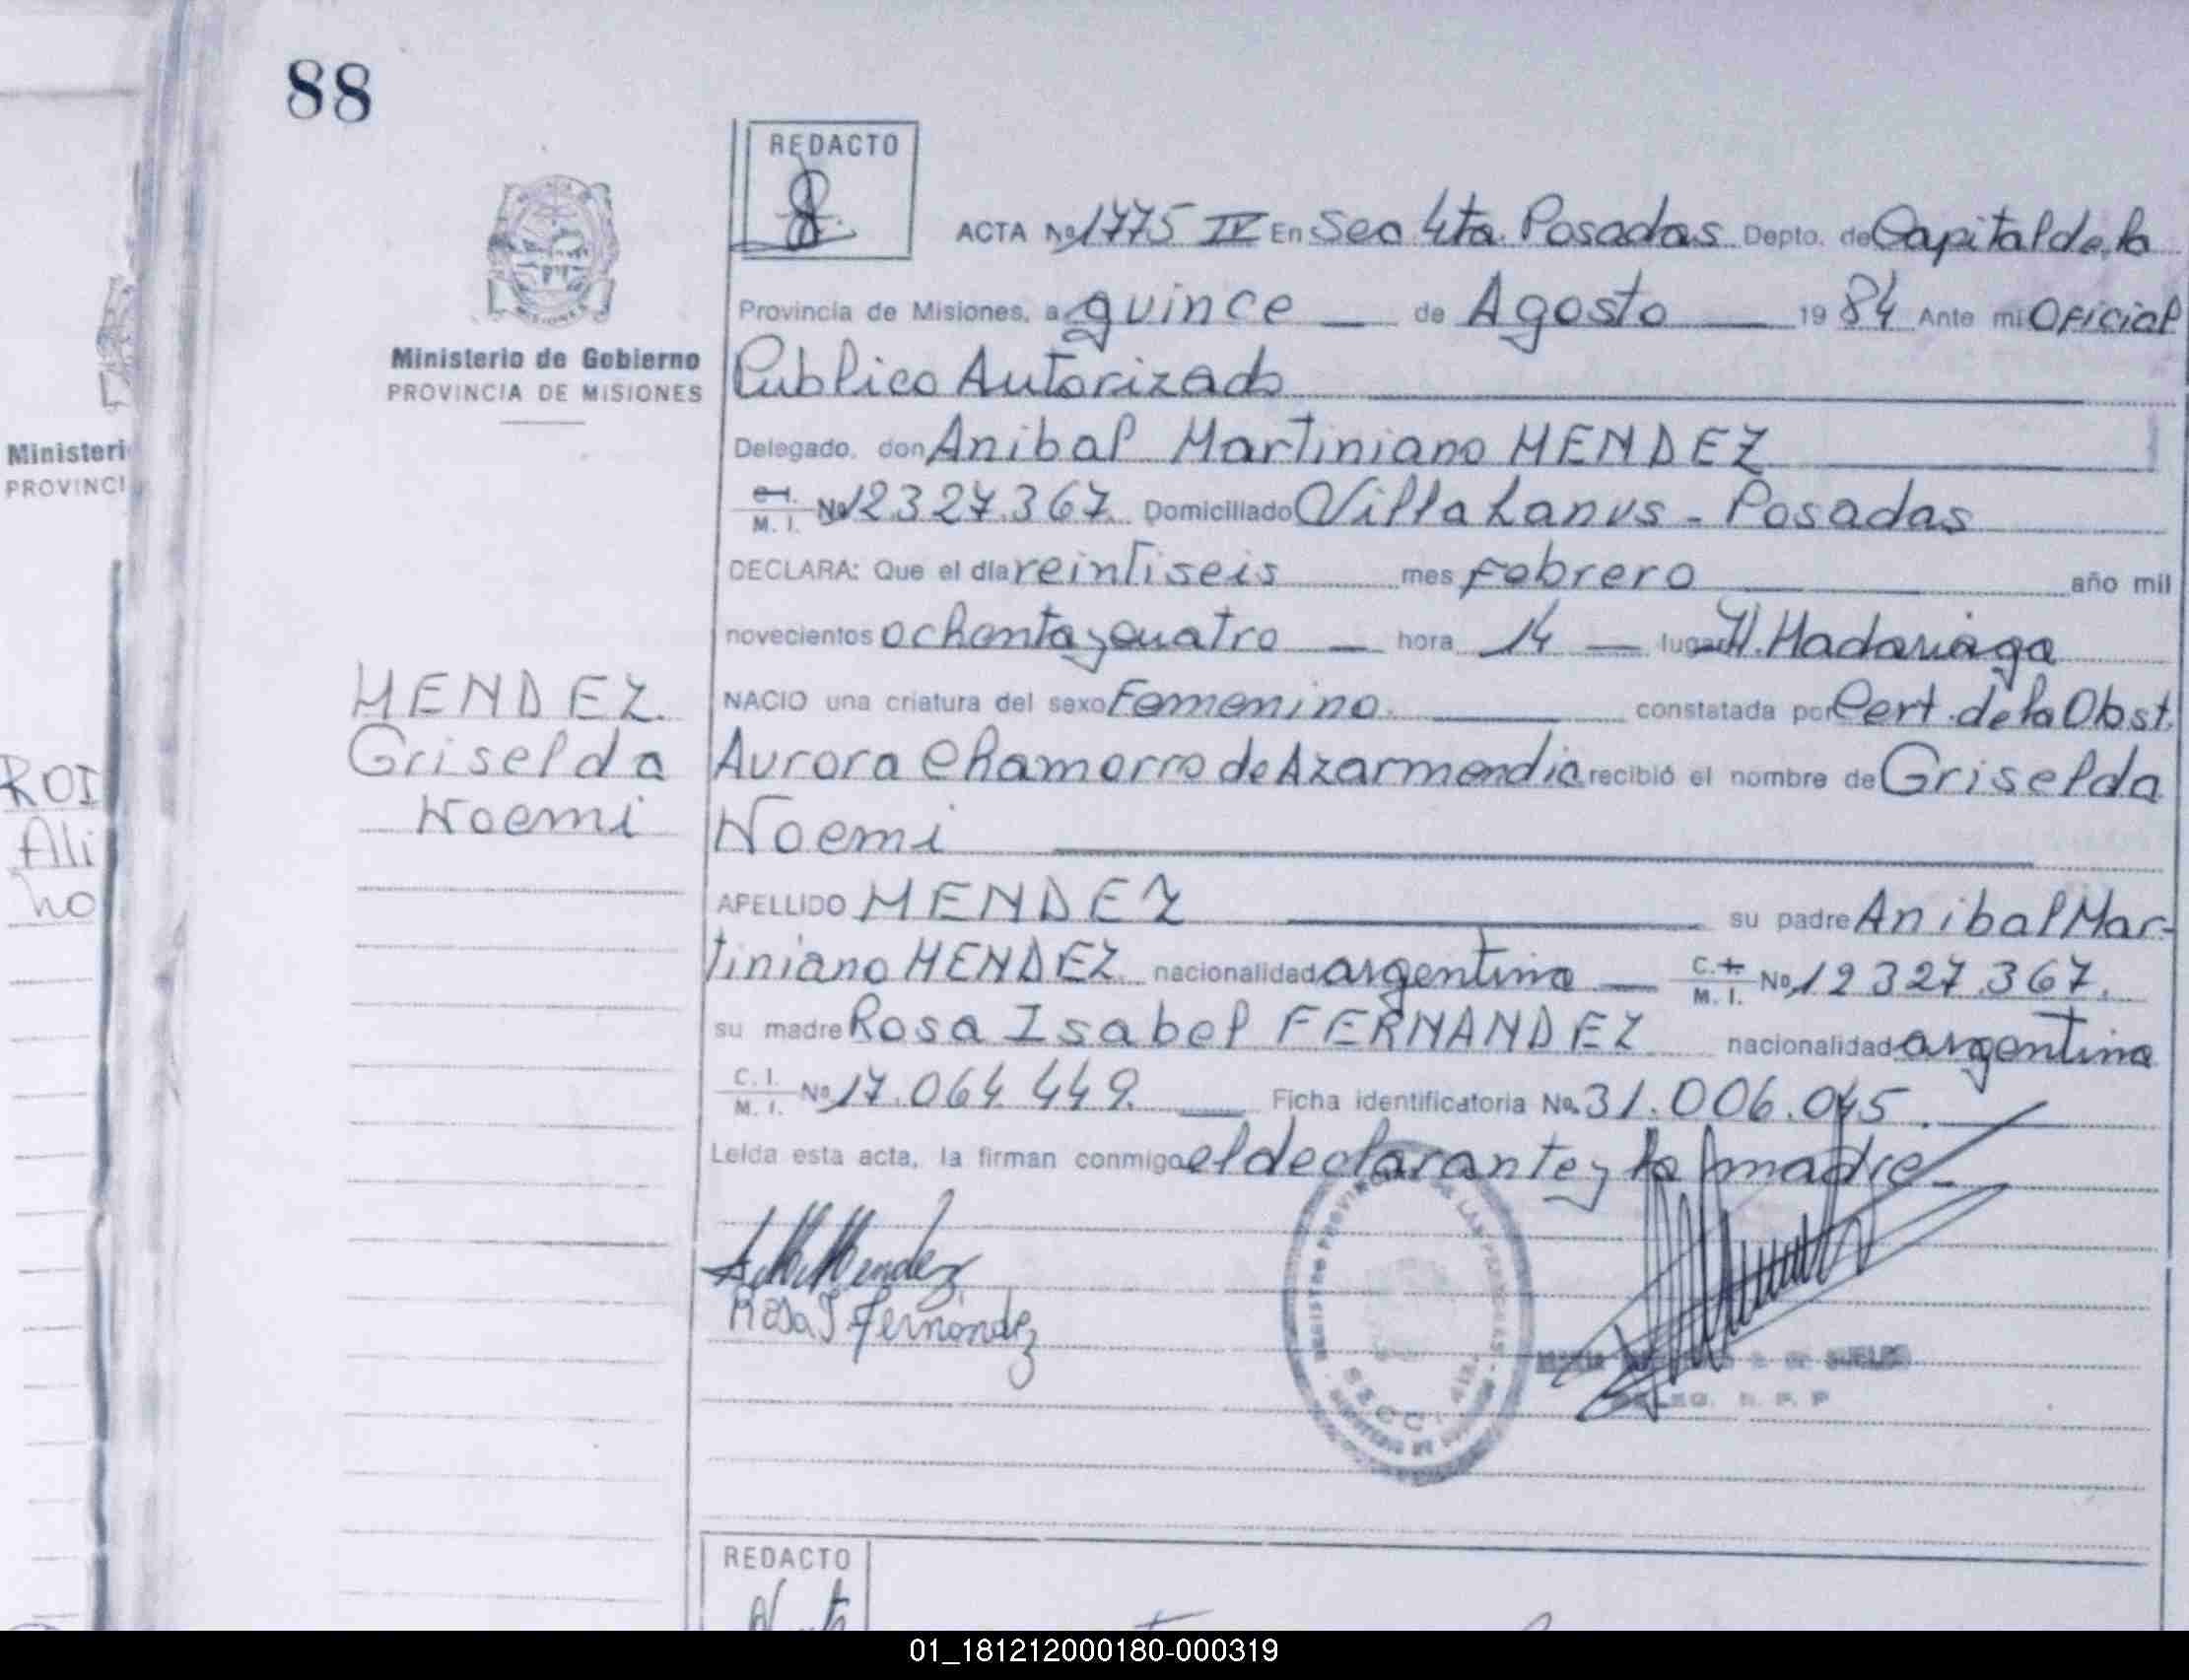 88
REDACTO
ACTA Nº 1775 IV En Sec 4ta. Posadas Depto. de Capital de la
Provincia de Misiones, a quince de Agosto 1984 Ante mi Oficial
Publico Autorizado
Ministerio de Gobierno
PROVINCIA DE MISIONES
Delegado, don Anibal Martiniano MENDEZ
Ministeri
PROVINCI
C.I.
M. I. Nº 12.327.367. Domiciliado Villa Lanus - Posadas
DECLARA: Que el día veintiseis mes Febrero año mil
novecientos ochenta y cuatro hora 14 lugar H. Madariaga
NACIO una criatura del sexo Femenino. constatada por Cert. de la Obst.
Aurora Chamorro de Azarmendia recibió el nombre de Griselda
Noemi
MENDEZ.
Griselda
Noemi
ROI
Ali
no
APELLIDO MENDEZ su padre Anibal Mar-
tiniano MENDEZ. nacionalidad argentina C.I.
M. I. Nº 12.327.367.
su madre Rosa Isabel FERNANDEZ nacionalidad argentina
C. I.
M. I. Nº 17.064.449. Ficha identificatoria Nº 31.006.045.
Leída esta acta, la firman conmigo el declarante y la madre-
Mendez
Rosa I Fernández
REGISTRO PROVINCIAL DE LAS PERSONAS
SECC. 4ta
MINISTERIO DE GOBIERNO
DE SUELDO
R. P. P
REDACTO
01_181212000180-000319